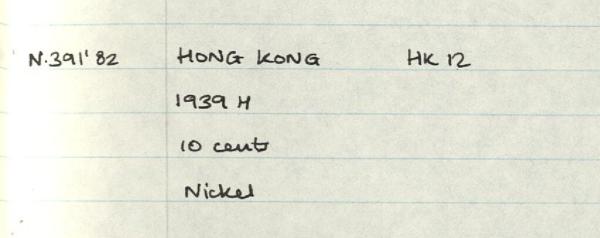 N.391'82 HONG KONG HK 12
1939 H
10 cents
Nickel